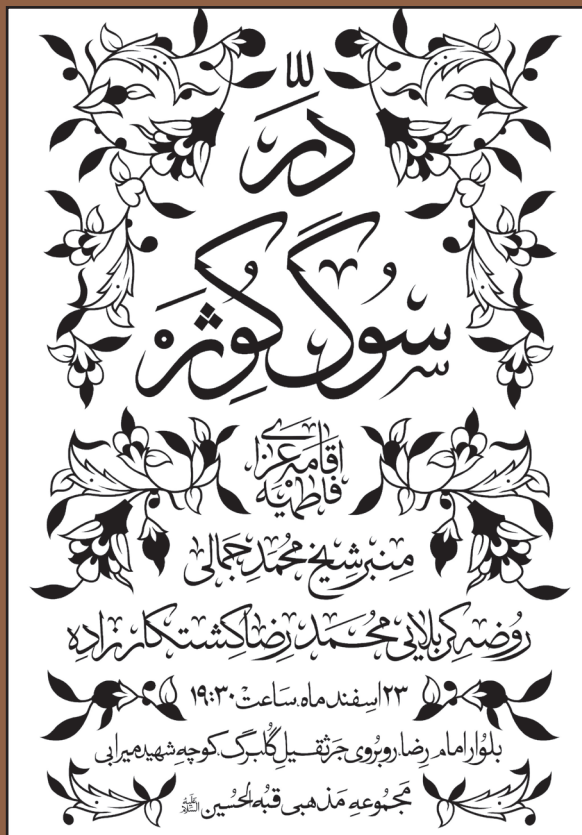 در
سوگ کوثر
اقامه عزای
فاطمیه
منبر شیخ محمد جمالی
روضه کربلائی محمد رضا کشتکارزاده
۲۳ اسفند ماه. ساعت ۱۹:۳۰
بلوار امام رضا. روبروی جرثقیل گلبرگ. کوچه شهید میرابی
مجموعه مذهبی قبه الحسین علیه السلام